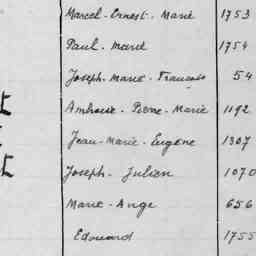 Marcel-Ernest-Marie 1753
Paul-Marie 1754
Joseph-Marie-François 54
Ambroise-Pierre-Marie 1192
Jean-Marie-Eugène 1307
Joseph-Julien 1070
Marie-Ange 656
Edouard 1755